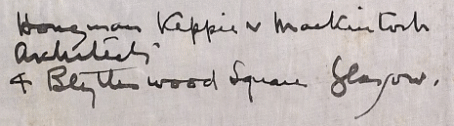 Honeyman Keppie & Mackintosh
Architects
4 Blythswood Square Glasgow.